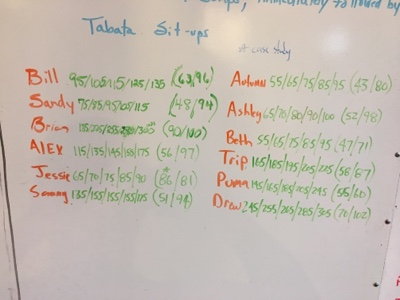 immediately followed by
Tabata Sit-ups
Bill 95/105/115/125/135 (63/96)
Sandy 75/85/95/105/115 (48/94)
Brian (90/100)
Alex 115/135/145/165/175 (56/97)
Jessie 65/70/75/85/90 (86/81)
Sammy 135/155/155/155/175 (51/94)
case study
Autumn 55/65/75/85/95 (43/80)
Ashley 65/70/80/90/100 (52/98)
Beth 55/65/75/85/95 (47/71)
Trip 165/185/195/205/225 (58/67)
Puma 145/165/185/205/245 (55/60)
Drew 245/255/265/285/305 (70/102)